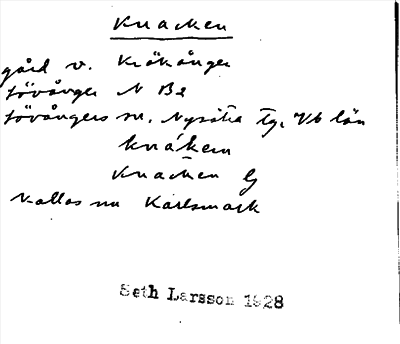 Knacken
gård v. Kråkånger
Lövånger N Be
Lövångers sn, Nysätra tg, Vb län
knáken
Knacken
Kallas nu Karlsmark
Seth Larsson 1928